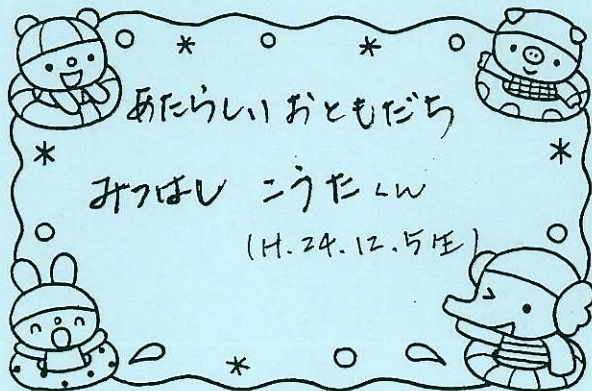 あたらしい おともだち
みつはし こうたくん
(H.24.12.5生)